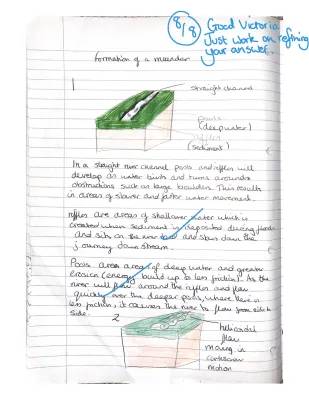 8/8 Good Victoria.
Just work on refining
your answer.
Formation of a meander
1
straight channel
pools
(deep water)
(sediment)
In a straight river channel pools and riffles will
develop as water twists and turns around
obstructions such as large boulders. This results
in areas of slower and faster water movement.
riffles are areas of shallower water which is
created when sediment is deposited during floods
and sits on the river bed and slows down the
journey down stream.
Pools are areas of deep water and greater
erosion (energy build up to less friction). As the
river will flow around the riffles and flow
quickly over the deeper pools, where there is
less friction, it causes the river to flow from side to
side.
2
helicoidal
flow
moving in
corkscrew
motion